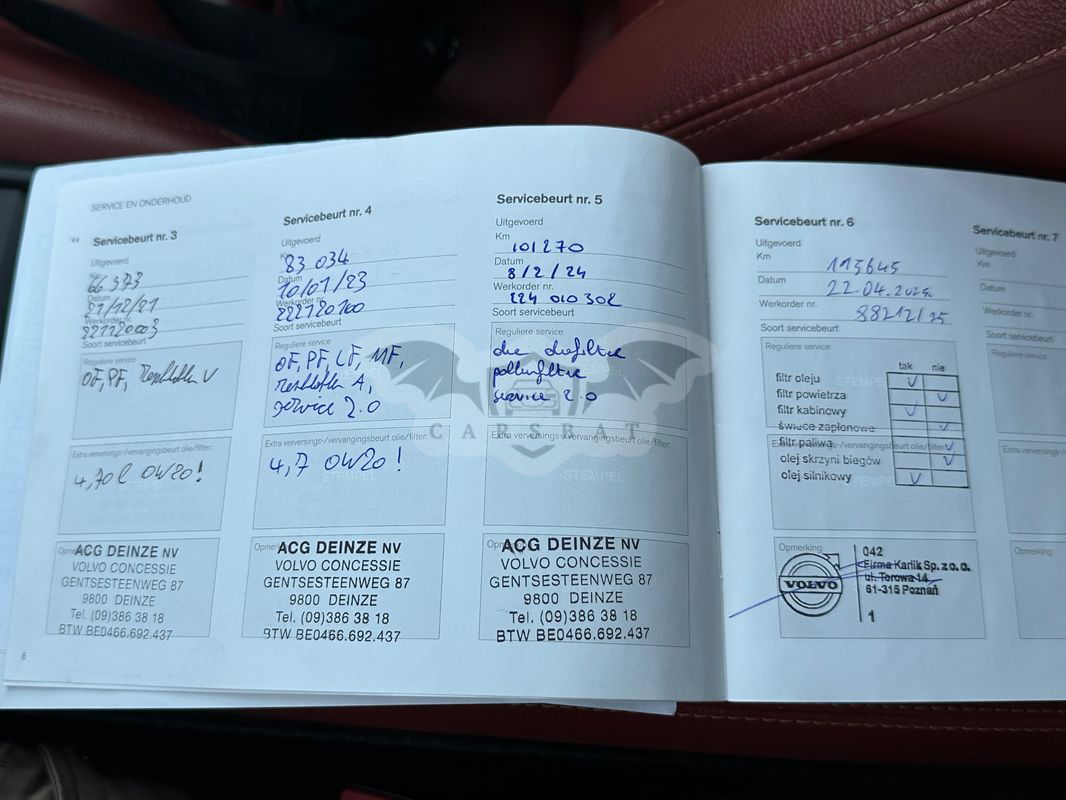 SERVICE EN ONDERHOUD
Servicebeurt nr. 3
Uitgevoerd
Km
66 373
Datum
21/12/21
Werkorder nr.
221120003
Soort servicebeurt
Reguliere service
OF, PF, V
Extra verversings-/vervangingsbeurt olie/filter:
4,70l 0W20!
Opmerking
ACG DEINZE NV
VOLVO CONCESSIE
GENTSESTEENWEG 87
9800 DEINZE
Tel. (09)386 38 18
BTW BE0466.692.437
8
Servicebeurt nr. 4
Uitgevoerd
Km
83 034
Datum
10/01/23
Werkorder nr.
222120100
Soort servicebeurt
Reguliere service
OF, PF, LF, MF,
A,
service 2.0
Extra verversings-/vervangingsbeurt olie/filter:
4,7 0W20!
STEMPEL
Opmerking
ACG DEINZE NV
VOLVO CONCESSIE
GENTSESTEENWEG 87
9800 DEINZE
Tel. (09)386 38 18
BTW BE0466.692.437
Servicebeurt nr. 5
Uitgevoerd
Km
101270
Datum
8/2/24
Werkorder nr.
224 010 302
Soort servicebeurt
Reguliere service
olie oliefilter
pollenfilter
service 2.0
Extra verversings-/vervangingsbeurt olie/filter:
STEMPEL
Opmerking
ACG DEINZE NV
VOLVO CONCESSIE
GENTSESTEENWEG 87
9800 DEINZE
Tel. (09)386 38 18
BTW BE0466.692.437
CARSBAT
Servicebeurt nr. 6
Uitgevoerd
Km
115645
Datum
22.04.2025
Werkorder nr.
88212/25
Soort servicebeurt
Reguliere service
tak nie
filtr oleju
STEMPEL
filtr powietrza
filtr kabinowy
świece zapłonowe
filtr paliwa
Extra verversings-/vervangingsbeurt olie/filter:
olej skrzyni biegów
olej silnikowy
STEMPEL
Opmerking
VOLVO
042
Firma Karlik Sp. z o.o.
ul. Torowa 14
61-315 Poznań
1
Servicebeurt nr. 7
Uitgevoerd
Km
Datum
Werkorder nr.
Soort servicebeurt
Reguliere service
Extra
Opmerking